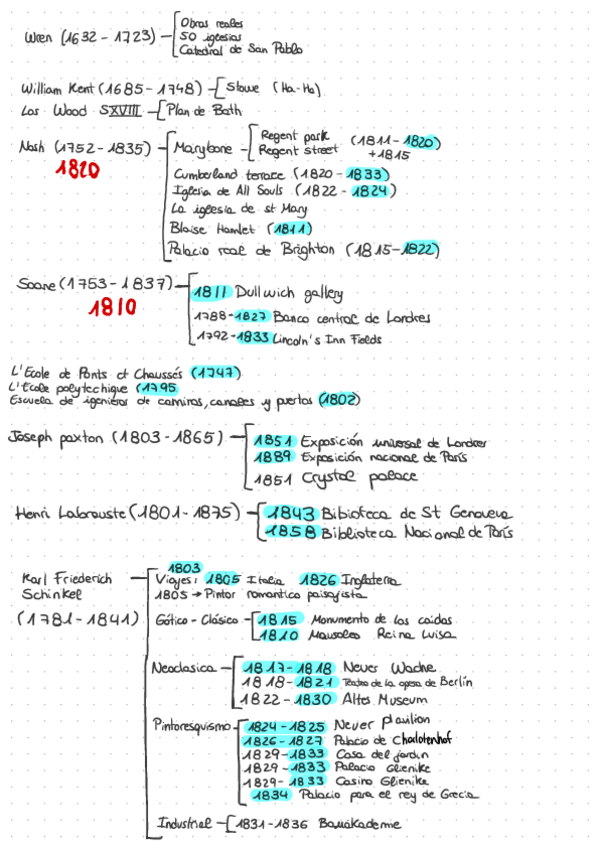 Wren (1632 - 1723)
Obras reales
50 iglesias
Catedral de San Pablo
William Kent (1685 - 1748)
Stowe (Ha-Ha)
Los Wood SXVIII
Plan de Bath
Nash (1752 - 1835)
1820
Marybone
Regent park (1811 - 1820)
Regent street +1815
Cumberland terrace (1820 - 1833)
Iglesia de All Souls (1822 - 1824)
La iglesia de st Mary
Blaise Hamlet (1811)
Palacio real de Brighton (1815 - 1822)
Soane (1753 - 1837)
1810
1811 Dullwich gallery
1788 - 1827 Banco central de Londres
1792 - 1833 Lincoln's Inn Fields
L'Ecole de Ponts et Chaussés (1747)
L'Ecole polytechique (1795
Escuela de igenieros de caminos, canales y puertos (1802)
Joseph paxton (1803 - 1865)
1851 Exposición universal de Londres
1889 Exposición nacional de París
1851 Crystal palace
Henri Labrouste (1801 - 1875)
1843 Bibioteca de St Genoveva
1858 Biblioteca Nacional de París
Karl Friederich Schinkel
(1781 - 1841)
1803
Viajes: 1805 Italia 1826 Inglaterra
1805 → Pintor romantico paisajista
Gótico - Clásico
1815 Monumento de los caidos
1810 Mausoleo Reina Luisa
Neoclasica
1817 - 1818 Neuer Wache
1818 - 1821 Teatro de la opera de Berlín
1822 - 1830 Altes Museum
Pintoresquismo
1824 - 1825 Neuer pavilion
1826 - 1827 Palacio de Charlotenhof
1829 - 1833 Casa del jardin
1829 - 1833 Palacio Glienike
1829 - 1833 Casino Glienike
1834 Palacio para el rey de Grecia
Industrial
1831 - 1836 Bauakademie